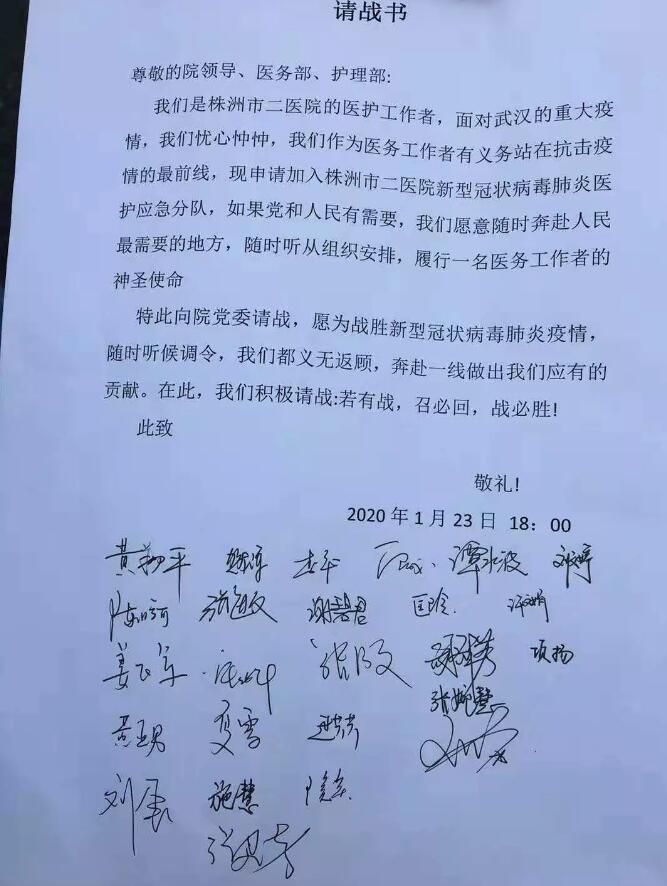 请战书
尊敬的院领导、医务部、护理部:
我们是株洲市二医院的医护工作者，面对武汉的重大疫
情，我们忧心忡忡，我们作为医务工作者有义务站在抗击疫
情的最前线，现申请加入株洲市二医院新型冠状病毒肺炎医
护应急分队，如果党和人民有需要，我们愿意随时奔赴人民
最需要的地方，随时听从组织安排，履行一名医务工作者的
神圣使命
特此向院党委请战，愿为战胜新型冠状病毒肺炎疫情，
随时听候调令，我们都义无返顾，奔赴一线做出我们应有的
贡献。在此，我们积极请战:若有战，召必回，战必胜!
此致
敬礼!
2020 年 1 月 23 日 18：00
黄翔平 谭北波
谢碧君 匡玲
项扬
黄亚男 夏雪
施慧